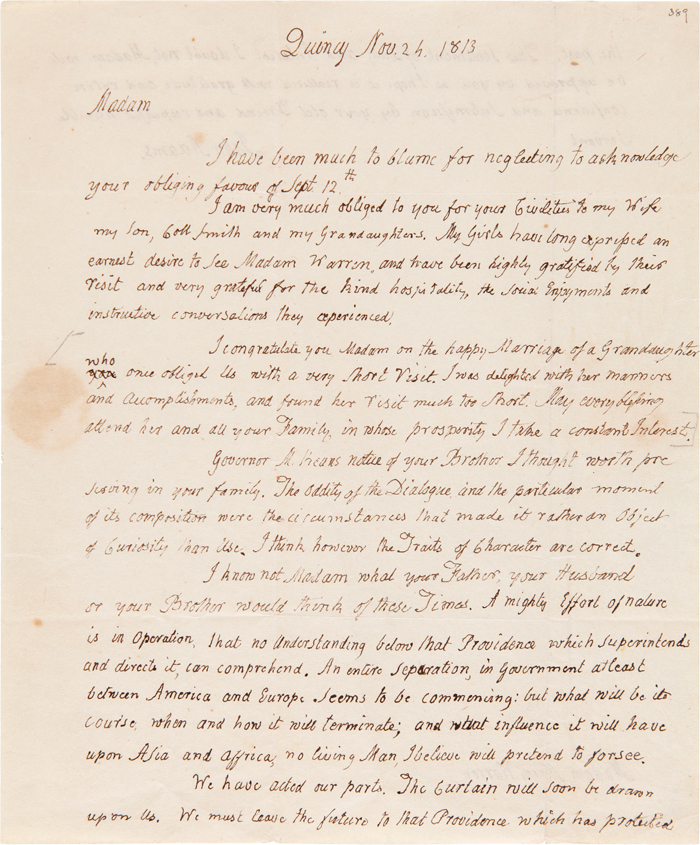 389
Quincy Nov. 24. 1813
Madam
I have been much to blume for neglecting to acknowledge
your obliging favour of Sept. 12.th
I am very much obliged to you for your Civilities to my Wife
my Son, Coll Smith and my Grandaughters. My Girls have long expressed an
earnest desire to See Madam Warren, and have been highly gratified by their
Visit and very grateful for the kind hospitality, the Social Enjoyments and
instructive conversations they experienced.
I congratulate you Madam on the happy Marriage of a Granddaughter
who
once obliged Us with a very Short Visit. I was delighted with her manners
and Acomplishments, and found her visit much too Short. May every blessing
attend her and all your Family, in whose prosperity I take a constant Interest.
Governor M.Keans notice of your Brother I thought worth pre
serving in your family. The Oddity of the Dialogue, and the particular moment
of its composition were the circumstances that made it rather an Object
of Curiosity than Use. I think however the Traits of Character are correct.
I know not Madam what your Father, your Husband
or your Brother would think of these Times. A mighty Effort of nature
is in Operation, that no Understanding below that Providence which superintends
and directs it, can comprehend. An entire Separation, in Government at least
between America and Europe Seems to be commencing: but what will be its
course, when and how it will terminate; and what influence it will have
upon Asia and Affrica, no living Man, I believe will pretend to forsee.
We have acted our parts. The Curtain will soon be drawn
upon Us. We must leave the future to that Providence which has protected